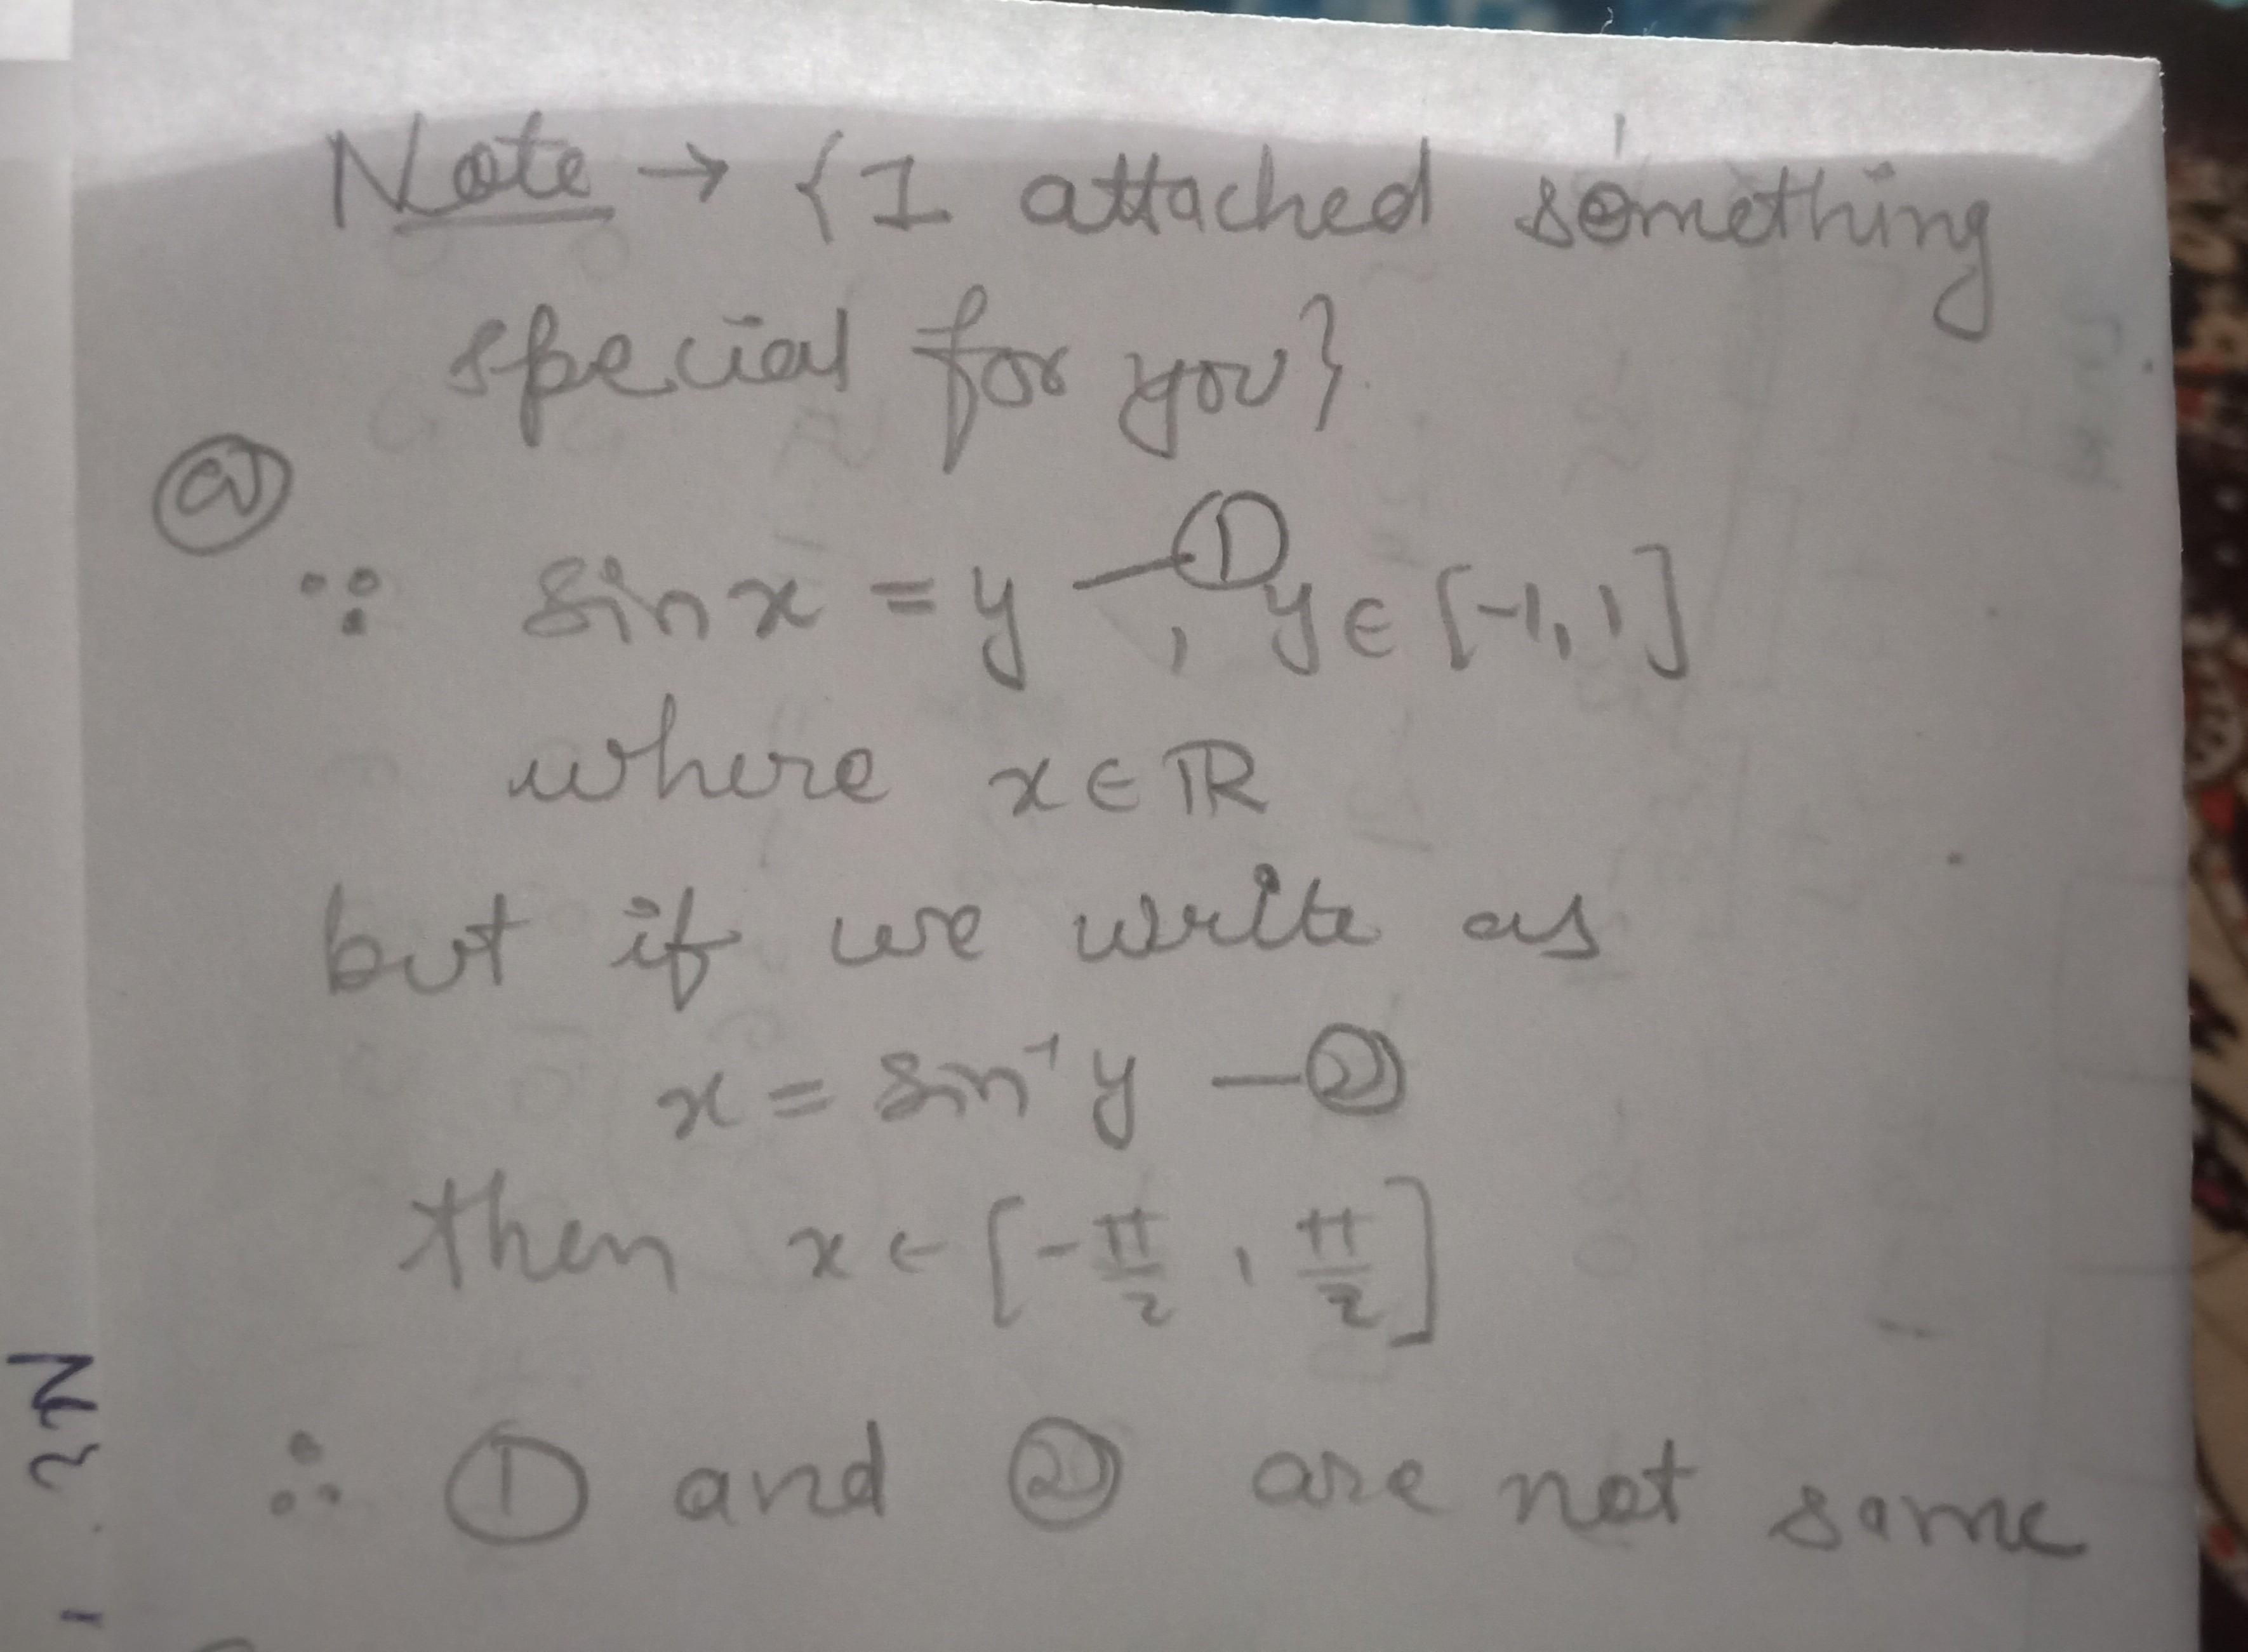 Note → {I attached something
special for you}.
(a)
∵ sin x = y —①, y ∈ [-1, 1]
where x ∈ ℝ
but if we write as
x = sin⁻¹ y —②
then x ∈ [-π/2, π/2]
∴ ① and ② are not same